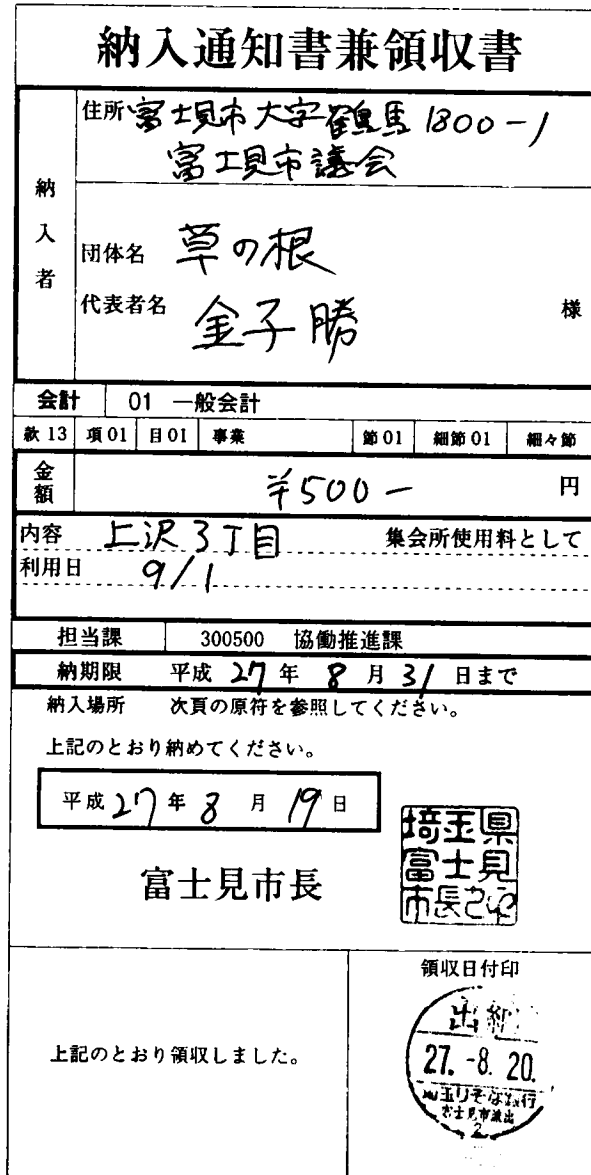 納入通知書兼領収書
納入者
住所 富士見市大字鶴馬1800-1
富士見市議会
団体名 草の根
代表者名 金子勝 様
会計 01 一般会計
款13 項01 目01 事業 節01 細節01 細々節
金額 ¥500- 円
内容 上沢3丁目 集会所使用料として
利用日 9/1
担当課 300500 協働推進課
納期限 平成27年8月31日まで
納入場所 次頁の原符を参照してください。
上記のとおり納めてください。
平成27年8月19日
富士見市長
埼玉県
富士見
市長之印
上記のとおり領収しました。
領収日付印
出納
27.-8.20.
埼玉りそな銀行
富士見市派出
2